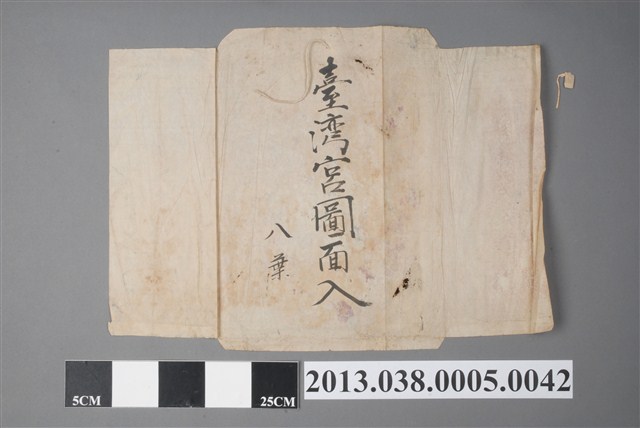 臺湾宮圖面入
八葉
5CM
25CM
2013.038.0005.0042